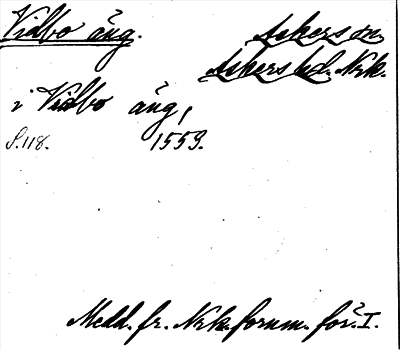 Vidbo äng.
Askers sn
Askers hd. Nrk.
i Vidbo äng,
S. 118. 1559.
Medd. fr. Nrk. fornm. för. I.